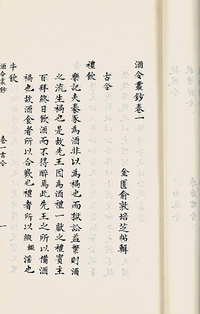 酒令叢鈔卷一
金匱俞敦培芝帖輯
古令
禮飲
樂記夫豢豕為酒非以為禍也而獄訟益繁則酒
之流生禍也是故先王因為酒禮一獻之禮賓主
百拜終日飲酒而不得醉焉此先王之所以備酒
禍也故酒食者所以合歡也禮者所以綴淫也
牛飲
酒令叢鈔
卷一古令
一